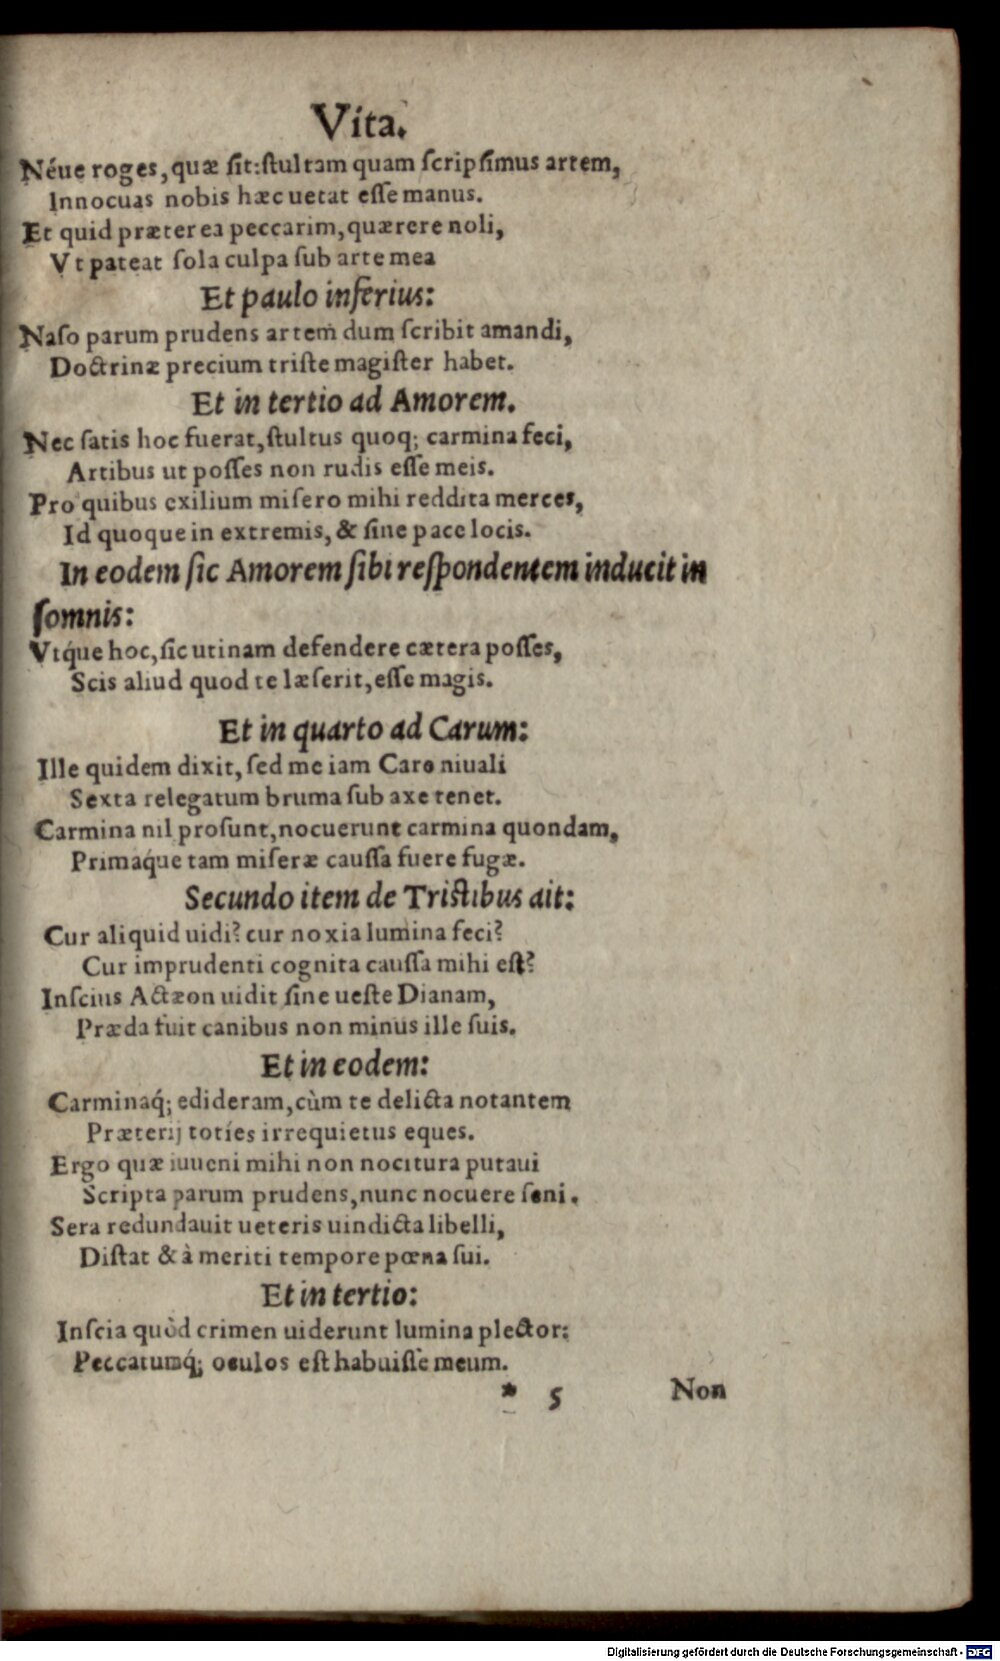 Vita.
Néue roges, quæ sit: stultam quam scripsimus artem,
Innocuas nobis hæc uetat esse manus.
Et quid præterea peccarim, quærere noli,
Vt pateat sola culpa sub arte mea
Et paulo inferius:
Naso parum prudens artem dum scribit amandi,
Doctrinæ precium triste magister habet.
Et in tertio ad Amorem.
Nec satis hoc fuerat, stultus quoq; carmina feci,
Artibus ut posses non rudis esse meis.
Pro quibus exilium misero mihi reddita merces,
Id quoque in extremis, & sine pace locis.
In eodem sic Amorem sibi respondentem inducit in
somnis:
Vtq́ue hoc, sic utinam defendere cætera posses,
Scis aliud quod te læserit, esse magis.
Et in quarto ad Carum:
Ille quidem dixit, sed me iam Care niuali
Sexta relegatum bruma sub axe tenet.
Carmina nil prosunt, nocuerunt carmina quondam,
Primaq́ue tam miseræ caussa fuere fugæ.
Secundo item de Tristibus ait:
Cur aliquid uidi? cur noxia lumina feci?
Cur imprudenti cognita caussa mihi est?
Inscius Actæon uidit sine ueste Dianam,
Præda fuit canibus non minus ille suis.
Et in eodem:
Carminaq́; edideram, cùm te delicta notantem
Præterij toties irrequietus eques.
Ergo quæ iuueni mihi non nocitura putaui
Scripta parum prudens, nunc nocuere seni.
Sera redundauit ueteris uindicta libelli,
Distat & à meriti tempore pœna sui.
Et in tertio:
Inscia quòd crimen uiderunt lumina plector:
Peccatumq́; oculos est habuisse meum.
* 5 Non
Digitalisierung gefördert durch die Deutsche Forschungsgemeinschaft - DFG